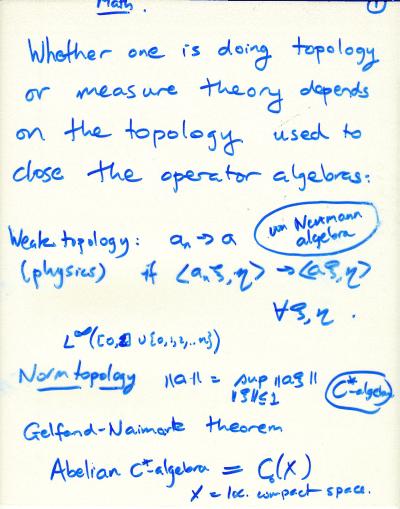 Math.
1
Whether one is doing topology
or measure theory depends
on the topology used to
close the operator algebras:
Weak topology: aₙ → a
von Neumann
algebra
(physics) if ⟨aₙξ, η⟩ → ⟨aξ, η⟩
∀ξ, η.
Norm topology ||a|| = sup ||aξ||
||ξ||≤1
C*-algebra
Gelfand-Naimark theorem
Abelian C*-algebra = C₀(X)
X = loc. compact space.